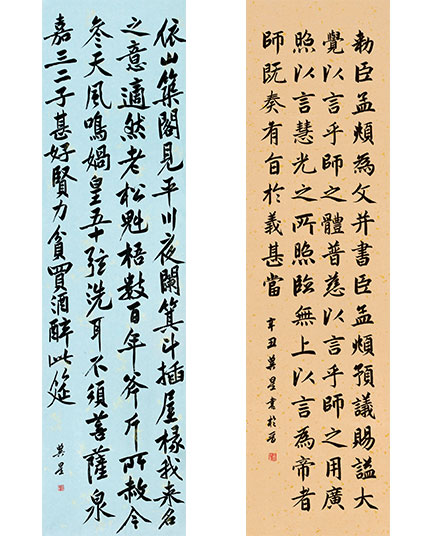 勅臣孟頫為文并書臣孟頫預議賜謚大
覺以言乎師之體普慈以言乎師之用廣
照以言慧光之所照臨無上以言為帝者
師既奏有旨於義甚當
辛丑星書於
依山築閣見平川夜闌箕斗插屋椽我來名
之意適然老松魁梧數百年斧斤所赦今
參天風鳴媧皇五十弦洗耳不須菩薩泉
嘉三二子甚好賢力貧買酒醉此筵
星